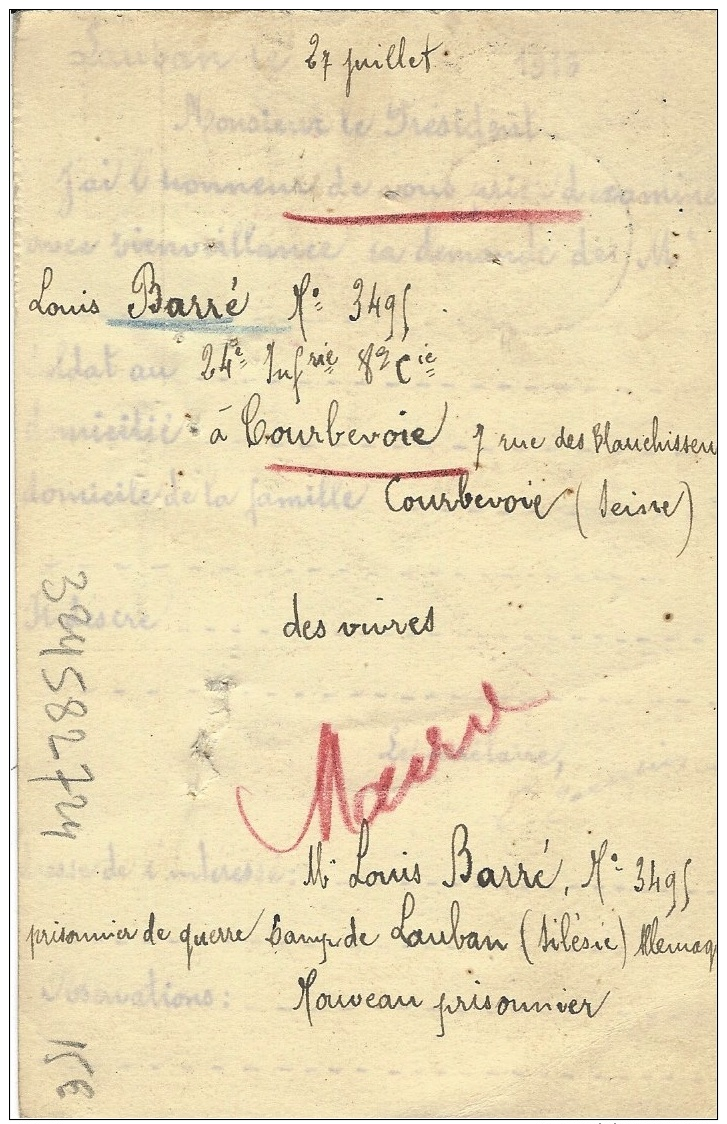 Lauban le 27 juillet 191
Monsieur le Président
J'ai l'honneur de vous prier d'examiner
avec bienveillance la demande de: Mr
Louis Barré No 3495
soldat au 24e Infrie 8e Cie
domicilié à Courbevoie 7 rue des Blanchisseu
domicile de la famille Courbevoie (Seine)
Il désire
des vivres
Le
Adresse de l'interessé: Mr Louis Barré, No 3495
prisonnier de guerre Camp de Lauban (Silésie) Allemag
Observations: Nouveau prisonnier
394582724
15€